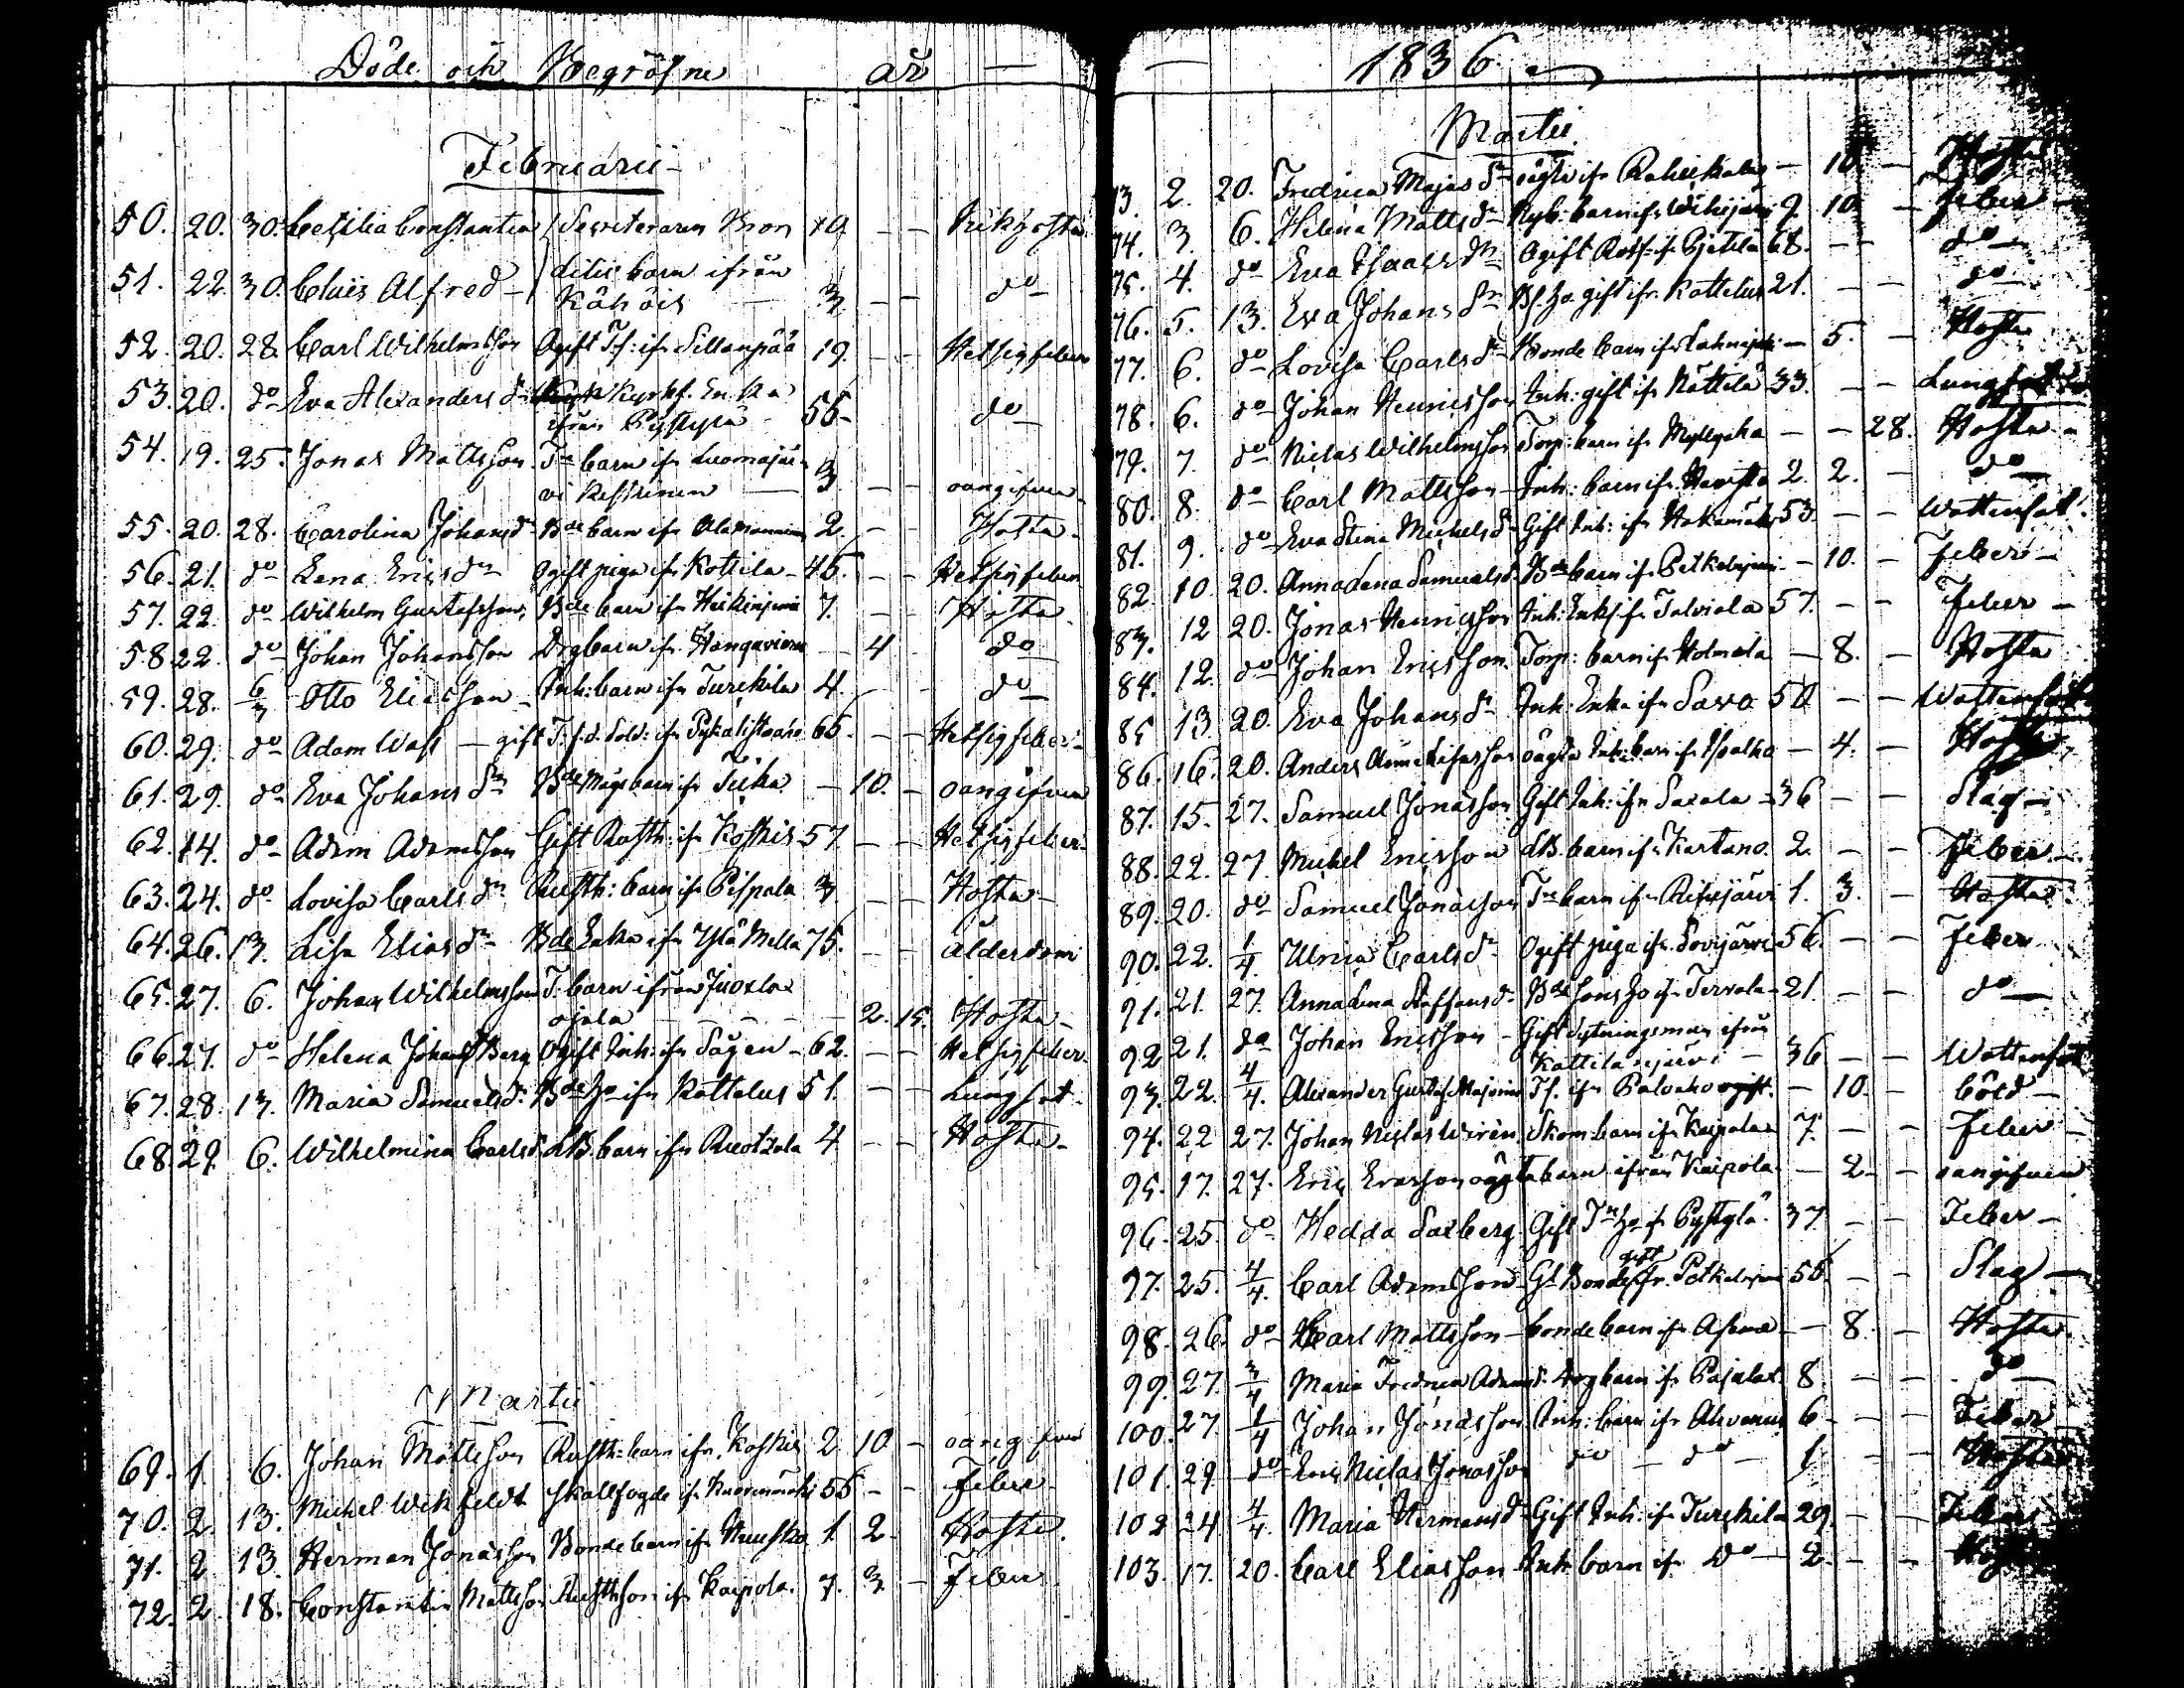 Döde och Begröfne år —
Februarii
50. 20. 30. Cecilia Constantia Secreteraren Kron 10 — — Kikhosta
51. 22. 30. Claës Alfred — ditis barn ifrån
Kähöis — 3 — — do
52. 20. 28. Carl Wilhelmsson Ogift T.s: ifr Sillanpää 19. — — Hetsigfeber
53. 20. do Eva Alexandersdr Kyrkf. Enka
ifrån Pystylä 55 — do
54. 19. 25. Jonas Mattsson Trs barn ifr Luomajär-
vi Keskinen — 3. — — oangifven
55. 20. 28. Carolina Johansd. Bde barn ifr 2. — — Hosta
56. 21. do Lena Ericsdr Ogift piga ifr Kottila 45. — — Hetsigfeber
57. 22. do Wilhelm Gustafsson Bde barn ifr Heikinjemi 7. — — Hosta
58. 22. do Johan Johansson Drg barn ifr — 4 do
59. 28. 6/3 Otto Eliasson — Inh: barn ifr Turckila 4. — — do
60. 29. do Adam Wass — gift T.f.d. Sold: ifr 65. — — Hetsigfeber
61. 29. do Eva Johansdr Bde Mågs barn ifr — 10. — oangifven
62. 14. do Adam Adamsson Gift Rusth: ifr Koskis 57 — — Hetsigfeber
63. 24. do Lovisa Carlsdr Rusth: barn ifr Pispala 3 — — Hosta
64. 26. 13. Lisa Eliasdr Bde Enka ifr Ylä Mella 75. — — ålderdom
65. 27. 6. Johan Wilhelmsson T. barn ifrån
ojala — 2. 15. Hosta
66. 27. do Helena Johansd Berg Ogift Inh: ifr Sägen — 62. — — Hetsigfeber
67. 28. 13. Maria Samuelsd. Bde Ho ifr Kattelus 51. — — Lungsot
68. 29. 6. Wilhelmina Carlsd. LB. barn ifr 4 — — Hosta
Martii
69. 1. 6. Johan Mattsson Rusth: barn ifr Koskis 2 10 — oangifven
70. 2. 13. Michel Wikfeldt Skallfogde ifr 55 — — Feber
71. 2 13. Herman Jonasson Bonde barn ifr 1 2. Hosta
72. 2 18. Constantin Mattsson Rusth son ifr Kaipola. 7. 3. — Feber
— 1836
Martii
73. 2. 20. Fredrica Majasdr oägta ifr — 10. — Hosta
74. 3. 6. Helena Mattsdr Nyb: barn ifr 9. 10 — Feber
75. 4. do Eva Isaacsdr Ogift Rotf: ifr Pjetilä 68. — — do
76. 5. 13. Eva Johansdr Bs. Ho gift ifr Kattelus 21. — — do
77. 6. do Lovisa Carlsdr Bonde barn ifr — 5. — Hosta
78. 6. do Johan Henricsson Inh: gift ifr Kättilä 33. — — Lungsot
79. 7. do Niclas Wilhelmsson Torp: barn ifr Myllyaha — — 28. Hosta
80. 8. do Carl Mattsson — Inh: barn ifr 2. 2. — do
81. 9. do Eva Stina Michelsd. Gift Inh: ifr 53. — — Wattensot
82. 10 20. Anna Lena Samuelsd. Bde barn ifr — 10. — Feber
83. 12 20. Jonas Henricsson Inh. Enkf. ifr Talviala 57. — — Feber
84. 12. do Johan Ericsson Torp: barn ifr — 8. — Hosta
85 13. 20. Eva Johansdr Inh. Enka ifr Savo 50 — — Wattensot
86. 16. 20. Anders oägta Inh: barn ifr — 4. — Hosta
87. 15. 27. Samuel Jonasson Gift Inh: ifr Saxala 36 — — Slag
88. 22. 27. Michel Ericsson LB. barn ifr Kartano. 2. — — Feber
89. 20. do Samuel Jonasson Trs barn ifr 1. 3. — Hosta
90. 22. 1/4. Ulrica Carlsdr Ogift piga ifr Sovijärvi 56. — — Feber
91. 21. 27. Anna Lena Staffansd. Bde sons ho ifr Tervala 21. — — do
92 21. do Johan Ericsson — Gift Sytningsman ifrån
— 36 — — Wattensot
93. 22. 4/4. Alexander Gustaf T.s. ifr ogift. — 10. — böld
94. 22 27. Johan Niclas Wirén Skom: barn ifr Kaipola 7. — — Feber
95. 17. 27. Eric Evasson oägta barn ifrån Kaipola — 2. — oangifven
96. 25. do Hedda Saxberg Gift Trs Ho ifr Pystylä 37 — — Feber
97. 25. 4/4. Carl Adamsson Gl. Bonde gift ifr. 55. — — Slag
98. 26. do Carl Mattsson — bonde barn ifr — 8. — Hosta
99. 27. 3/4 Maria Fredrica Adamsd. Drg barn ifr Pajula 8. — — do
100. 27. 1/4 Johan Jonasson Inh: barn ifr 6 — — Feber
101. 29. do Eric Niclas Jonasson do — do — 1 — Hosta
102 24 4/4. Maria Hermansd. Gift Inh: ifr Turckila 29. — — Feber
103. 17. 20. Carl Eliasson Inh: barn ifr Do — 2. — —